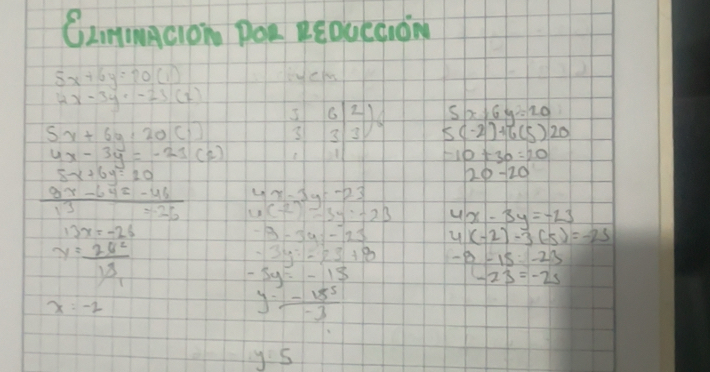 ELIMINACIÓN POR REDUCCIÓN
5x+6y=20(1)
4x-3y=-23(2)
5x+6y=20(1)
4x-3y=-23(2)
5x+6y=20
8x-6y=-46
13 =-26
13x=-26
x=26²
13
x=-2
mcm
3 6|2
3 3 3 6
1 1
4x-3y=-23
4(-2)-3y=-23
-8-3y=-23
-3y=-23+8
-3y=-15
y=-15⁵
-3
y=5
5x+6y=20
5(-2)+6(5)20
-10+30=20
20-20
4x-3y=-23
4(-2)-3(5)=-23
-8-15=-23
-23=-23